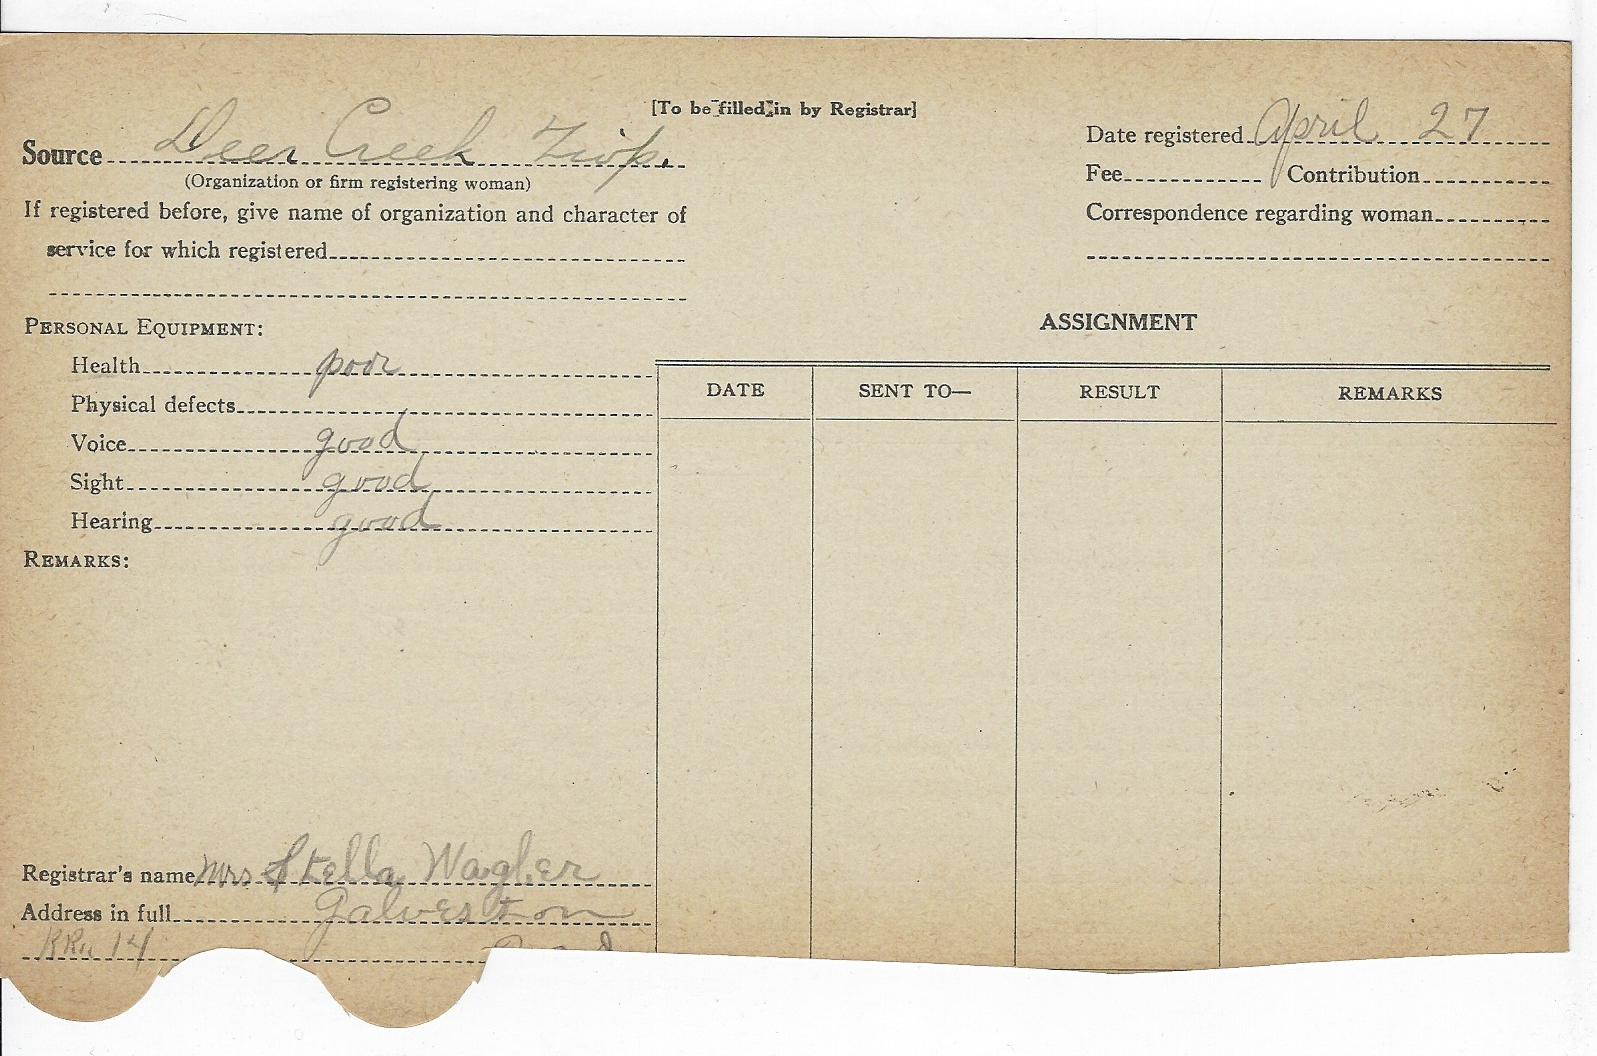 [To be filled in by Registrar]
Source Deer Creek Twp.
(Organization or firm registering woman)
If registered before, give name of organization and character of
service for which registered
Date registered April 27
Fee Contribution
Correspondence regarding woman
PERSONAL EQUIPMENT:
Health poor
Physical defects
Voice good
Sight good
Hearing good
REMARKS:
ASSIGNMENT
DATE SENT TO— RESULT REMARKS
Registrar's name Mrs Stella Wagler
Address in full Galveston
14